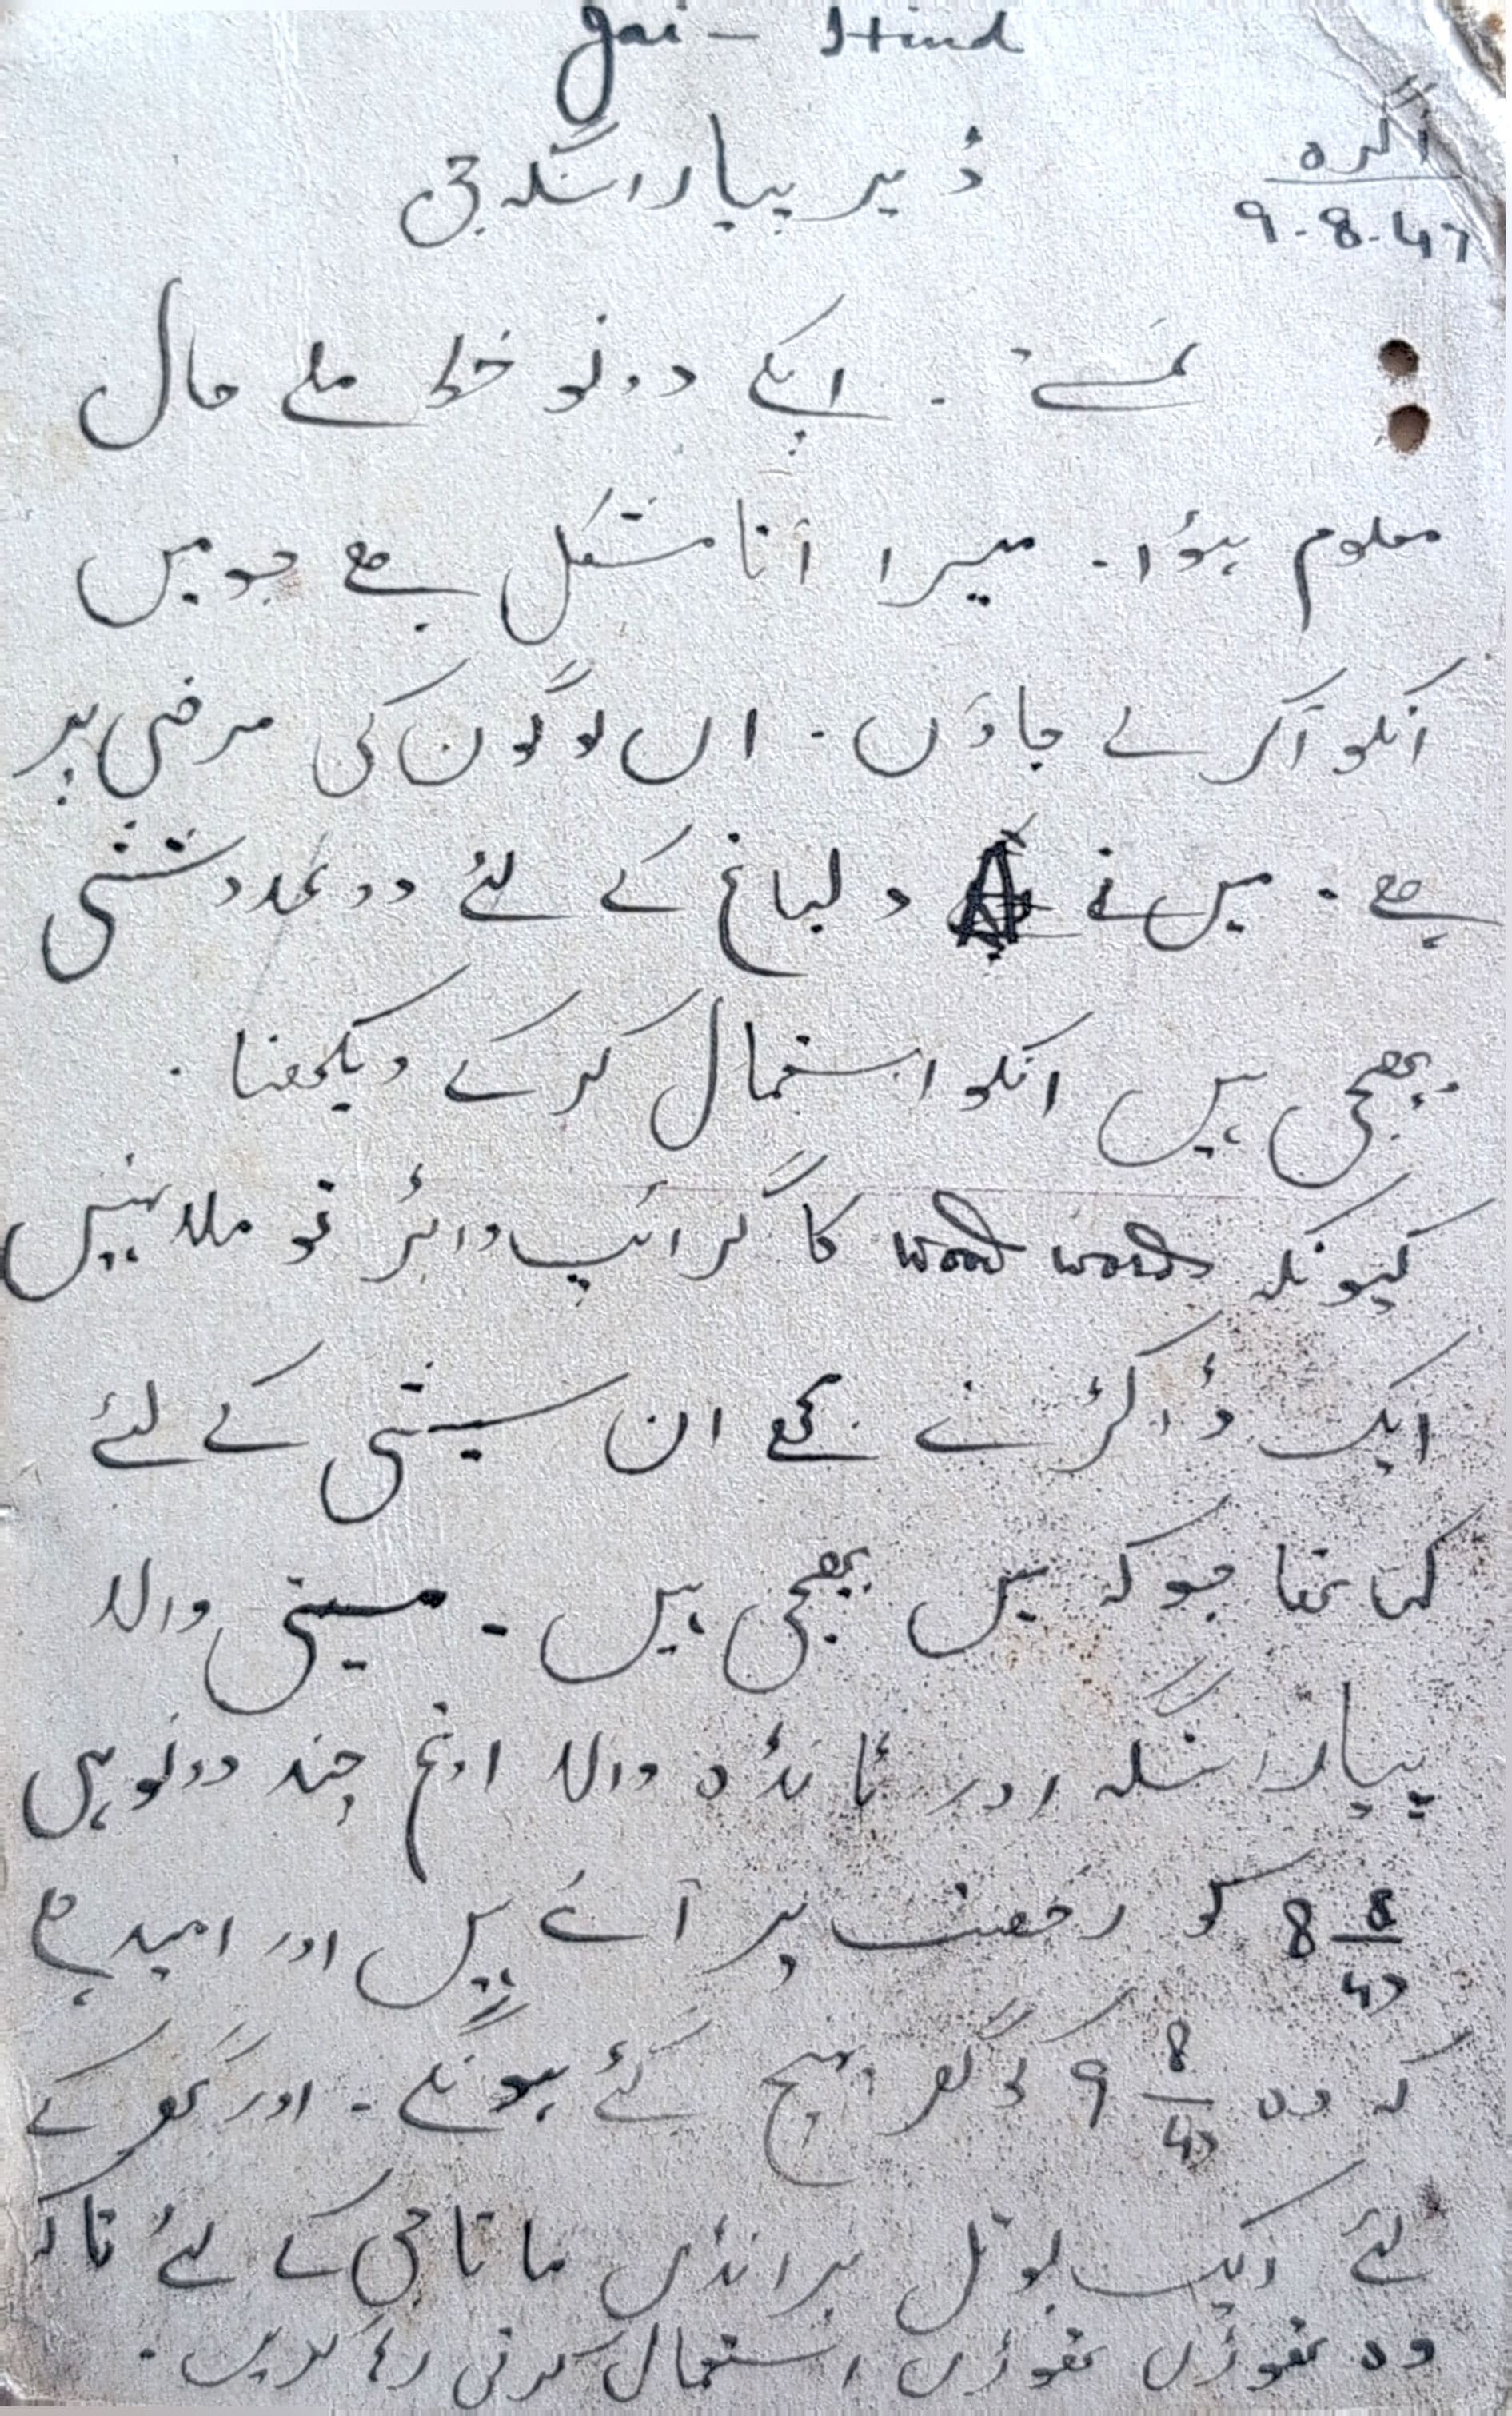 Jai - Hind
آگرہ
9-8-47
ڈیر پیارا سنگھ جی
نمستے ۔ اپکے دونو خط ملے حال
معلوم ہؤا۔ میرا آنا مشکل ہے جو میں
انکو آکر لے جاؤں۔ ان لوگوں کی مرضی پر
ہے۔ میں نے دلباغ کے لئے دو عدد شیشی
بھیجی ہیں انکو استمال کرکے دیکھنا۔
کیونکہ wood words کا گرائپ واٹر تو ملا نہیں
ایک ڈاکٹر نے مجھے ان شیشی کے لئے
کہا تھا جو کہ میں بھیجی ہیں۔ والا
پیارا سنگھ اور ٹانڈہ والا چند دونو ہی
8 8/47 کو رخصت پر آئے ہیں اور امید ہے
کہ وہ 9 8/47 کو گھر پہنچ گئے ہونگے۔ اور گھر کے
لئے ایک بوتل برانڈی ماتا جی کے لئے تاکہ
وہ تھوڑی تھوڑی استمال کرتی رہا کریں۔